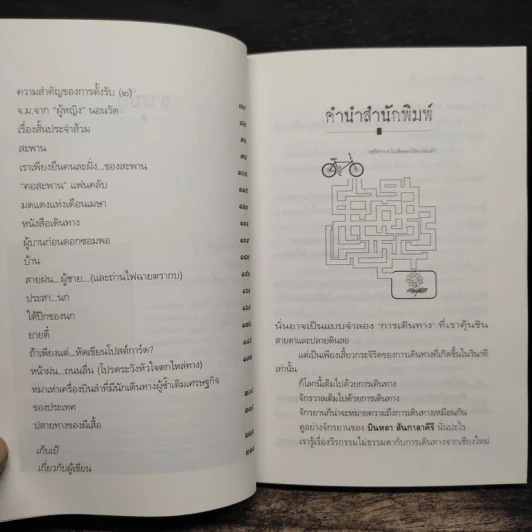 ความสำคัญของการตั้งรับ (๒)
จ.ม.จาก "ผู้หญิง" นอนวัด
เรื่องสั้นประจำส้วม
สะพาน
เราเพียงยืนคนละฝั่ง...ของสะพาน
"คอสะพาน" แฟนคลับ
มดแดงแห่งเดือนเมษา
หนังสือเดินทาง
ผู้บานก่อนดอกซอมพอ
บ้าน
สายฝน...ผู้ชาย...(และถ่านไฟฉายตรากบ)
ประสา...นก
ใต้ปีกของนก
ยายตี๋
ถ้าเพียงแต่...หัดเขียนโปสต์การ์ด?
หน้าฝน...ถนนลื่น (โปรดระวังหัวใจตกไหล่ทาง)
หมาเห่าเครื่องบินลำที่มีนักเดินทางผู้ช้ำเติมเศรษฐกิจ
ของประเทศ
ปลายทางของผีเสื้อ
เก็บเป้
เกี่ยวกับผู้เขียน
คำนำสำนักพิมพ์
นั่นอาจเป็นแบบจำลอง 'การเดินทาง' ที่เราคุ้นชิน
สายตาและปลายดินสอ
แต่เป็นเพียงเสี้ยวกระจิริดของการเดินทางที่เกิดขึ้นในวินาที
เท่านั้น
ก็โลกนี้เต็มไปด้วยการเดินทาง
จักรวาลเต็มไปด้วยการเดินทาง
จักรยานก็น่าจะหมายความถึงการเดินทางเหมือนกัน
ดูอย่างจักรยานของ บินหลา สันกาลาคีรี นั่นปะไร
เรารู้เรื่องวีรกรรมไม่ธรรมดากับการเดินทางจากเชียงใหม่